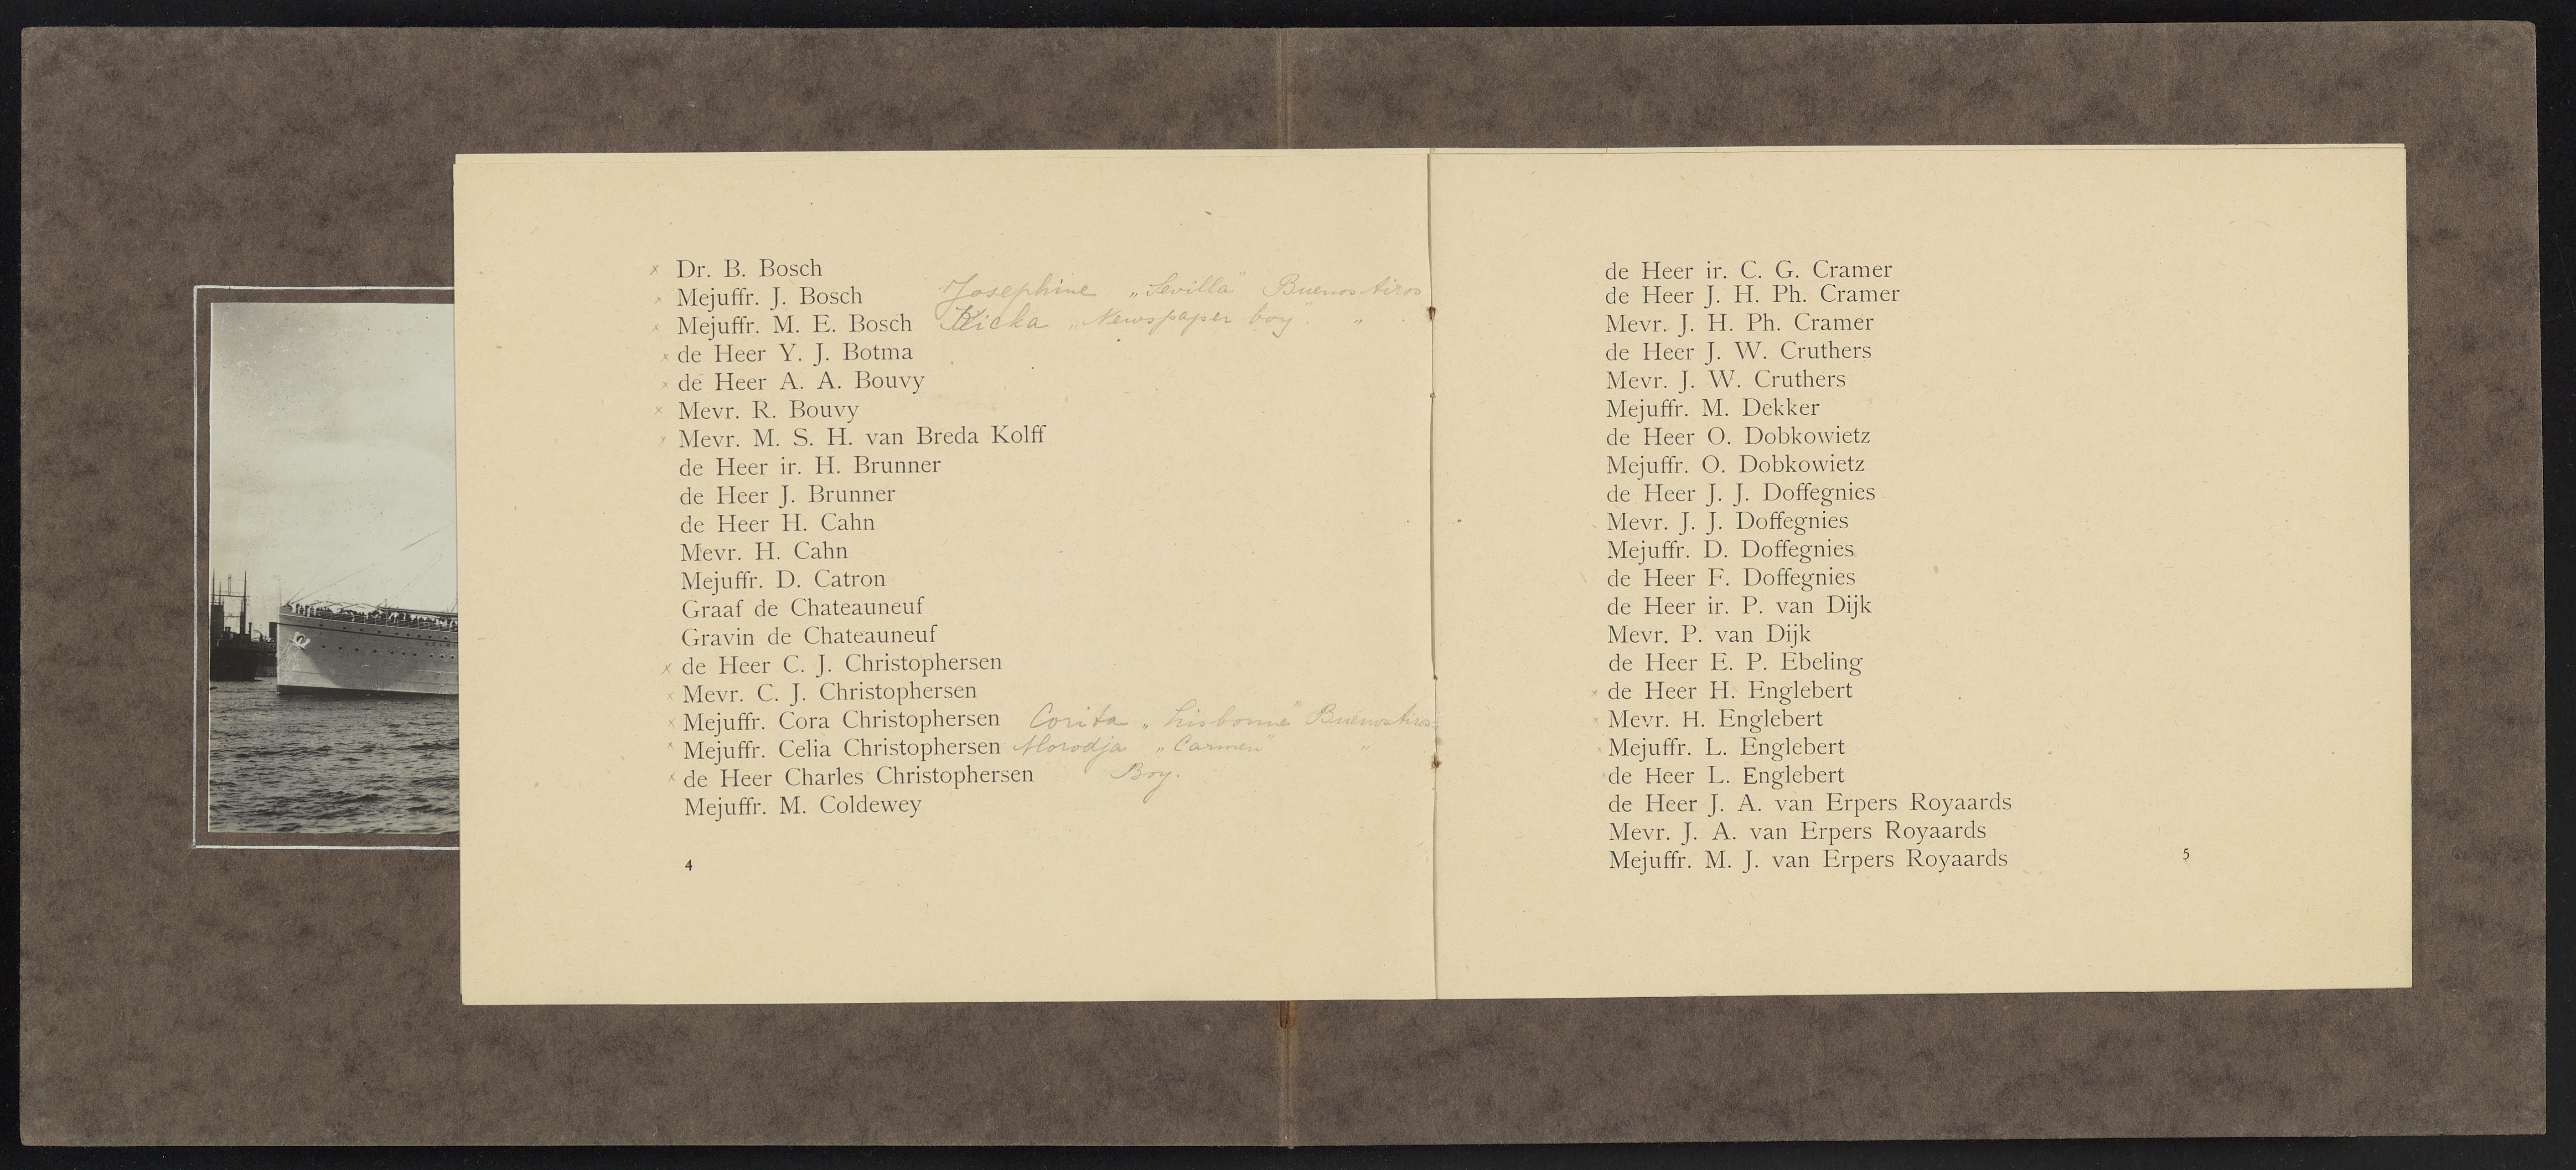 × Dr. B. Bosch
× Mejuffr. J. Bosch Josephine „Sevilla" Buenos Aires
× Mejuffr. M. E. Bosch Kicka „Newspaper boy" „
× de Heer Y. J. Botma
× de Heer A. A. Bouvy
× Mevr. R. Bouvy
× Mevr. M. S. H. van Breda Kolff
de Heer ir. H. Brunner
de Heer J. Brunner
de Heer H. Cahn
Mevr. H. Cahn
Mejuffr. D. Catron
Graaf de Chateauneuf
Gravin de Chateauneuf
× de Heer C. J. Christophersen
× Mevr. C. J. Christophersen
× Mejuffr. Cora Christophersen Corita „Lisbonne" Buenos Aires
× Mejuffr. Celia Christophersen „Carmen" „
× de Heer Charles Christophersen Boy.
Mejuffr. M. Coldewey
4
de Heer ir. C. G. Cramer
de Heer J. H. Ph. Cramer
Mevr. J. H. Ph. Cramer
de Heer J. W. Cruthers
Mevr. J. W. Cruthers
Mejuffr. M. Dekker
de Heer O. Dobkowietz
Mejuffr. O. Dobkowietz
de Heer J. J. Doffegnies
Mevr. J. J. Doffegnies
Mejuffr. D. Doffegnies
de Heer F. Doffegnies
de Heer ir. P. van Dijk
Mevr. P. van Dijk
de Heer E. P. Ebeling
× de Heer H. Englebert
× Mevr. H. Englebert
× Mejuffr. L. Englebert
× de Heer L. Englebert
de Heer J. A. van Erpers Royaards
Mevr. J. A. van Erpers Royaards
Mejuffr. M. J. van Erpers Royaards
5